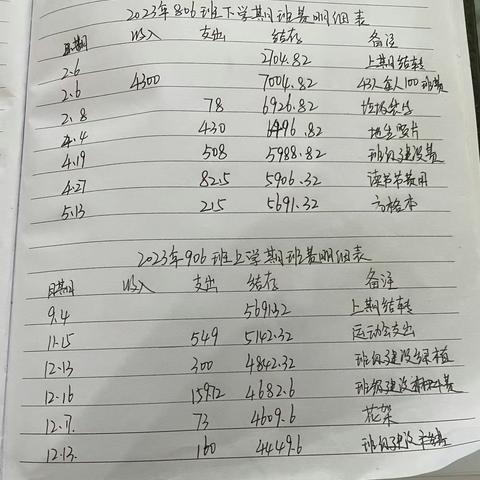 2023年806班下学期班费明细表
日期 收入 支出 结存 备注
2704.82 上期结转
2.6 4300 7004.82 43人每人100班费
2.6
2.8 78 6926.82
4.4 430 6496.82 地生照片
4.19 508 5988.82 班级建设费
4.27 82.5 5906.32 读书节费用
5.13 215 5691.32 方格本
2023年906班上学期班费明细表
日期 收入 支出 结存 备注
9.4 5691.32 上期结转
11.15 549 5142.32 运动会支出
12.13 300 4842.32 班级建设绿植
12.16 159.72 4682.6 班级建设材料费
12.17. 73 4609.6 花架
12.13. 160 4449.6 班级建设